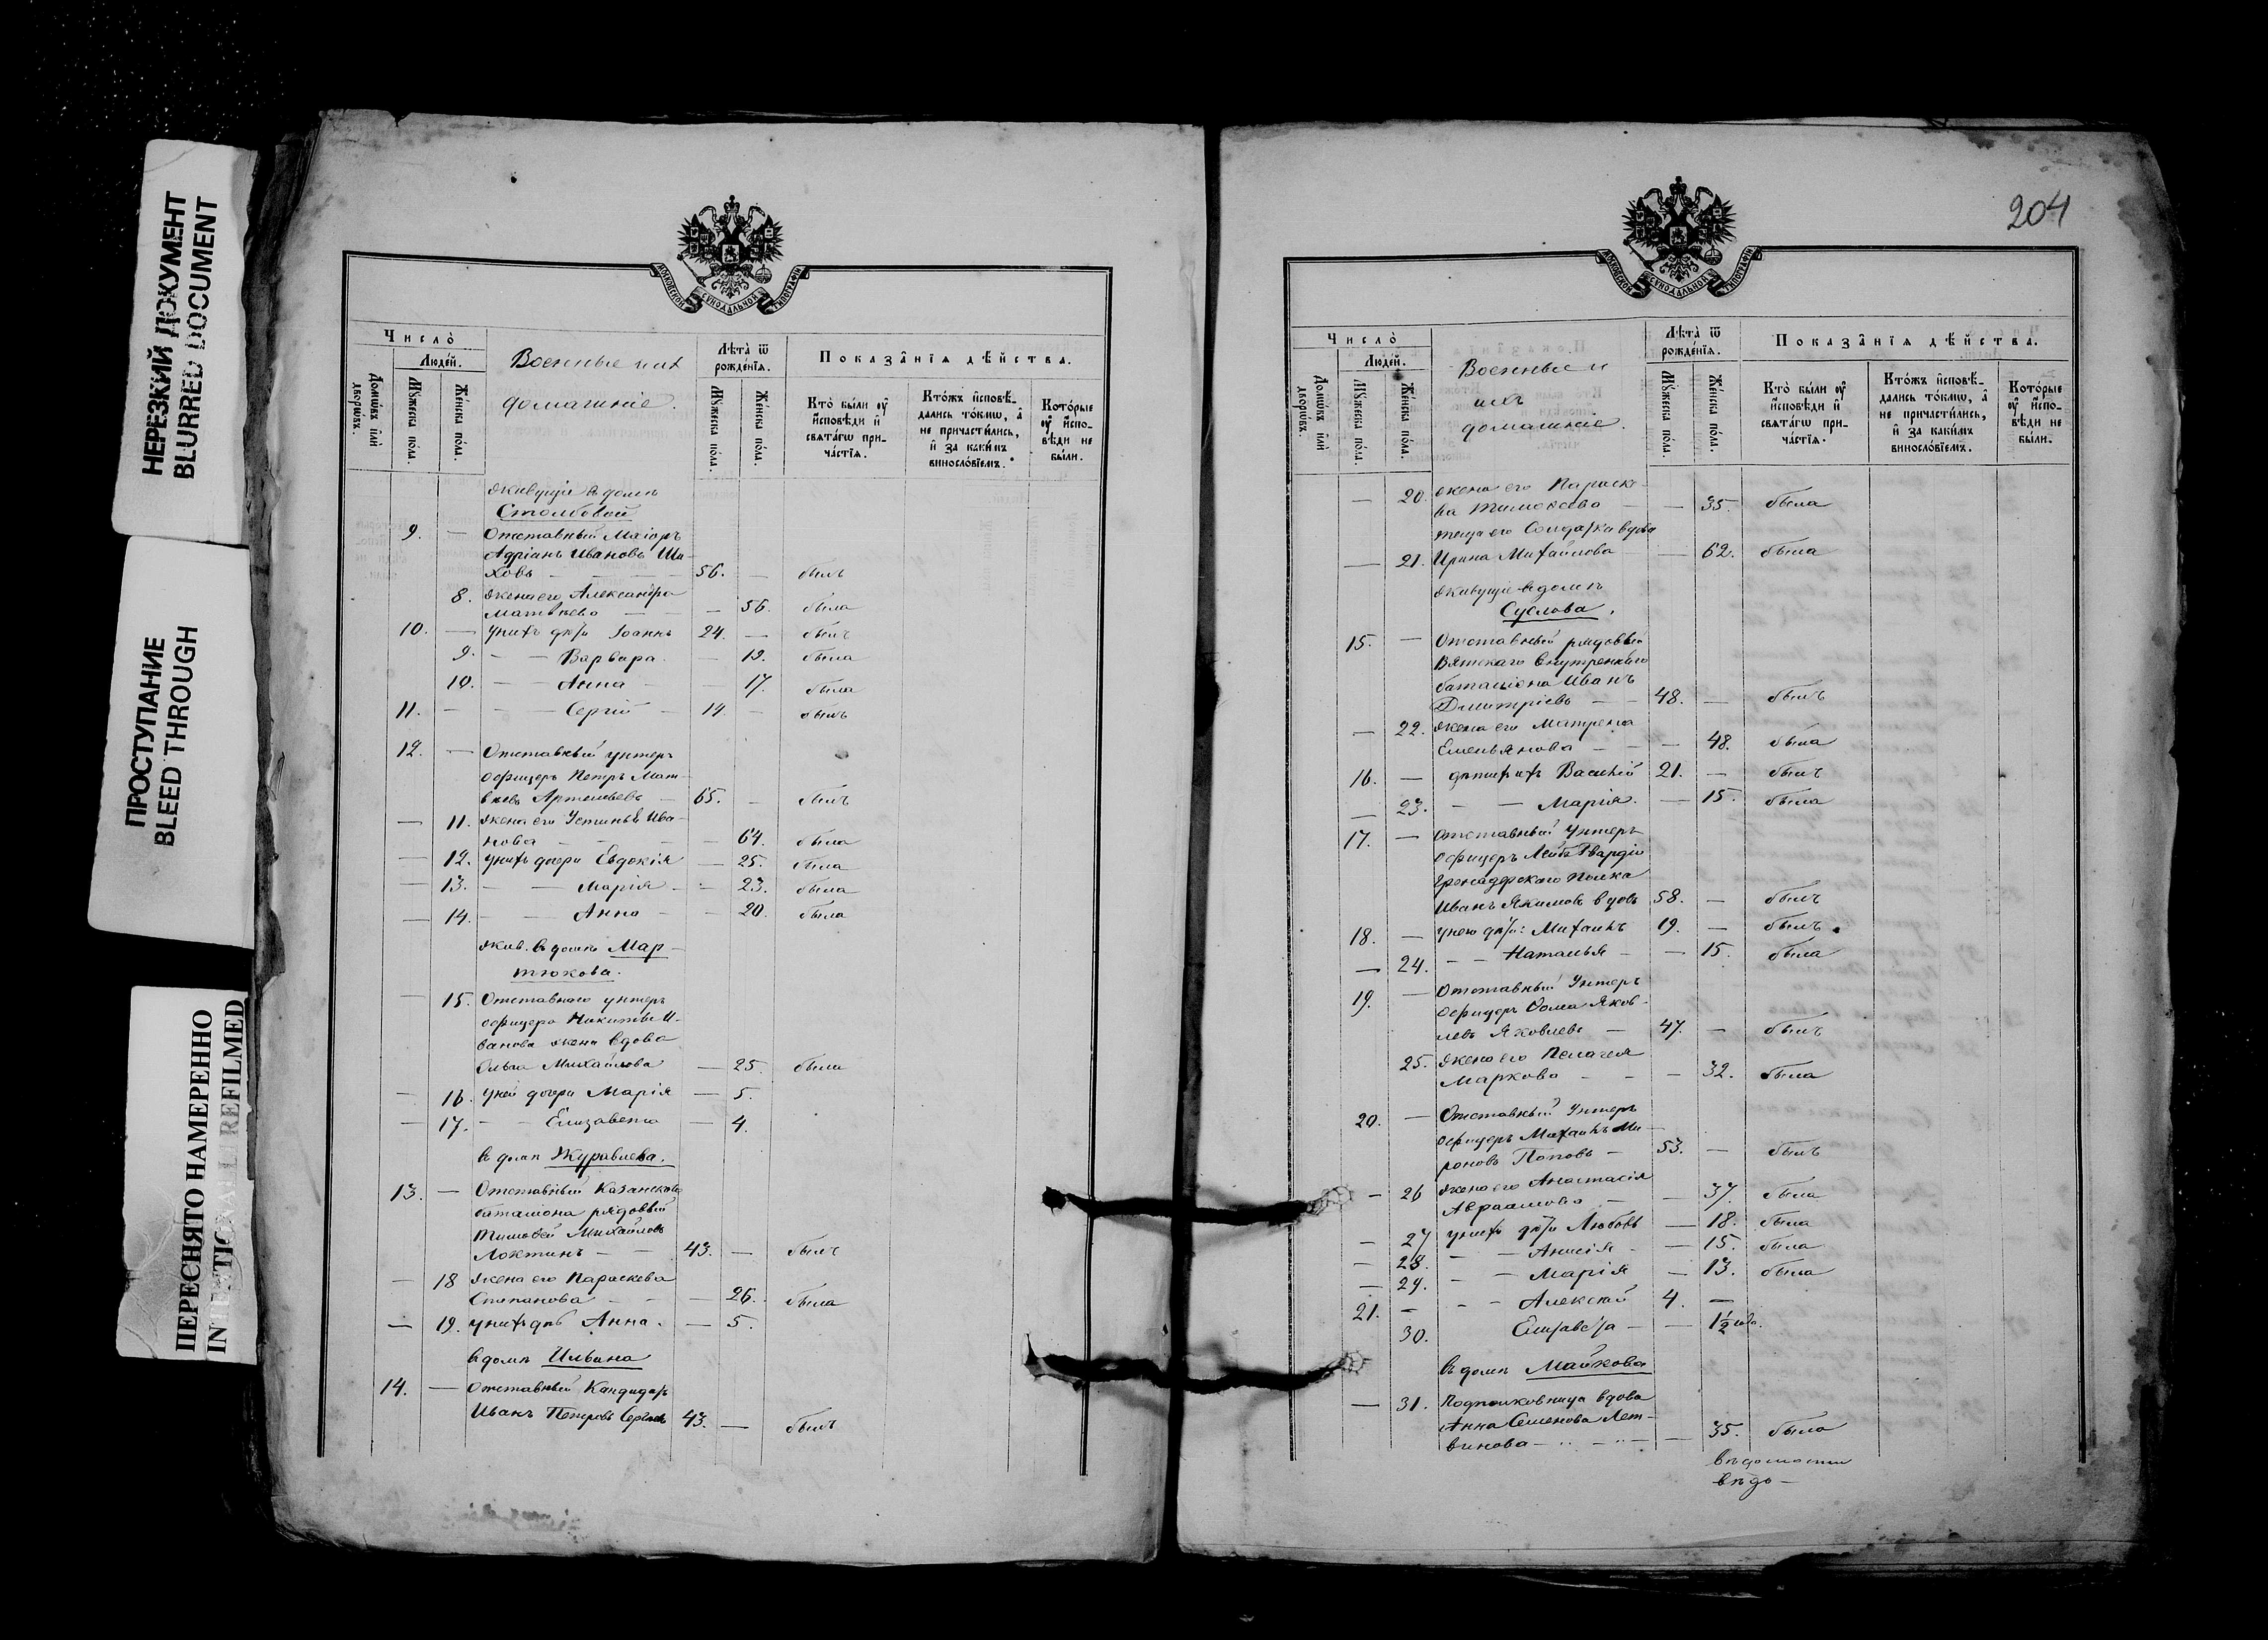 НЕРЕЗКИЙ ДОКУМЕНТ
BLURRED DOCUMENT
ПРОСТУПАНИЕ
BLEED THROUGH
ПЕРЕСНЯТО НАМЕРЕННО
INTENTIONAL REFILMED
МОСКОВСКОЙ СѴНОДАЛЬНОЙ ТИПОГРАФІИ
Число̀
Люде́й.
Домѡ́въ и҆лѝ дворѡ́въ.
Мꙋ́жеска по́ла.
Же́нска по́ла.
Военные и их
домашніе.
Лѣ́та ѿ рожде́нїѧ.
Мꙋ́жеска по́ла.
Же́нска по́ла.
Показа̑нїѧ дѣ́йства.
Кто̀ бы́ли ᲂу҆ и҆сповѣ́ди и҆ свѧта́гѡ прича́стїѧ.
Кто́жъ и҆сповѣ́дались то́кмѡ, а҆ не причасти́лись, и҆ за каки́мъ винослóвїемъ.
Кото́рые ᲂу҆ и҆сповѣ́ди не бы́ли.
живущіе въ домѣ
Столбовой
9. — Отставный Маіоръ
Адріанъ Ивановъ Ши-
ховъ — 56. — былъ
8. жена его Александра
Матвѣева — — 56. была
10. — у нихъ дѣти Іоаннъ 24. — былъ
9. — — Варвара. — 19. была
10. — — Анна — — 17. была
11. — — — Сергій — 14. — былъ
12. — Отставный унтеръ
офицеръ Петръ Мат-
вѣевъ Артемьевъ — 65. — былъ
— 11. жена его Устинья Ива-
нова — — 64. была
— 12. у нихъ дочери Евдокія — 25. была
— 13. — — Марія — — 23. была
— 14. — — Анна — — 20. была
жив. въ домѣ Мар-
тюкова.
— 15. Отставного унтеръ
офицера Никиты И-
ванова жена вдова
Ольга Михайлова — 25. была
— 16. у ней дочери Марія — 5.
— 17. — — Елизавета — 4.
въ домѣ Журавлева.
13. — Отставный Казанскаго
баталіона рядовый
Тимофей Михайловъ
Локтинъ — — 43. — былъ
— 18 жена его Параскева
Степанова — — — 26. была
— 19. у нихъ дочь Анна. — 5.
въ домѣ Ильина
14. — Отставный Кандидатъ
Иванъ Петровъ 43. — былъ
204
МОСКОВСКОЙ СѴНОДАЛЬНОЙ ТИПОГРАФІИ
Число̀
Люде́й.
Домѡ́въ и҆лѝ дворѡ́въ.
Мꙋ́жеска по́ла.
Же́нска по́ла.
Военные и
ихъ
домашніе.
Лѣ́та ѿ рожде́нїѧ.
Мꙋ́жеска по́ла.
Же́нска по́ла.
Показа̑нїѧ дѣ́йства.
Кто̀ бы́ли ᲂу҆ и҆сповѣ́ди и҆ свѧта́гѡ прича́стїѧ.
Кто́жъ и҆сповѣ́дались то́кмѡ, а҆ не причасти́лись, и҆ за каки́мъ винослóвїемъ.
Кото́рые ᲂу҆ и҆сповѣ́ди не бы́ли.
— 20. жена его Параске-
ва Тимофеева — — 35. была
теща его Солдатка вдова
— 21. Ирина Михайлова — — 62. была
живущіе въ домѣ
Суслова.
15. — Отставный рядовый
Вятскаго внутренняго
баталіона Иванъ
Дмитріевъ — — 48. — былъ
— 22. жена его Матрена
Емельянова — — — 48. была
16. — дѣти ихъ Василій 21. — былъ
— 23. — — Марія. — 15. была
17. — Отставный Унтеръ
офицеръ Лейбъ Гвардіи
Гренадерскаго Полка
Иванъ Якимовъ вдовъ 58. — былъ
18. — у него дѣти: Михаилъ 19. — былъ
— 24. — — Наталья — — 15. была
19. — Отставный Унтеръ
офицеръ Фома Яков-
левъ Яковлевъ — 47. — былъ
25. жена его Пелагея
Маркова — — — 32. была
20. — Отставный Унтеръ
офицеръ Михаилъ Ми-
роновъ Поповъ — 53. — былъ
— 26 жена его Анастасія
Авраамова — — 37. была
— 27 у нихъ дѣти Любовь — 18. была
— 28. — — Анисія — — 15. была
— 29. — — Марія — 13. была
21. — — — Алексѣй 4. —
30. Елизавета — — 1½ года.
въ домѣ Майкова
— 31. Подполковница вдова
Анна Семенова Лет-
винова — — — 35. была
вѣдомости
вѣдо—